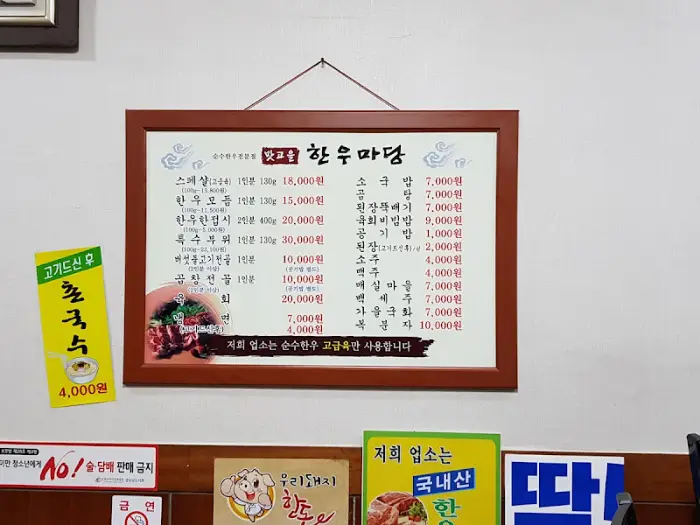 순수한우전문점 맛고을 한우마당
스페샬(고급육) 1인분 130g 18,000원
(100g-13,800원)
한우모듬 1인분 130g 15,000원
(100g-11,500원)
한우한접시 2인분 400g 20,000원
(100g-5,000원)
특수부위 1인분 130g 30,000원
(100g-23,100원)
버섯불고기전골 1인분 10,000원
(2인분 이상) (공기밥 별도)
곱창전골 1인분 10,000원
(2인분 이상) (공기밥 별도)
육회 20,000원
냉면 7,000원
(고기드신후) 4,000원
소국밥 7,000원
곰탕 7,000원
된장뚝배기 7,000원
육회비빔밥 9,000원
공기밥 1,000원
된장(고기드신후) 2,000원
소주 4,000원
맥주 4,000원
매실마을 7,000원
백세주 7,000원
가을국화 7,000원
복분자 10,000원
저희 업소는 순수한우 고급육만 사용합니다
고기드신 후
촌국수
4,000원
미만 청소년에게 No! 술·담배 판매 금지
금연
우리돼지
한돈
저희 업소는
국내산
한